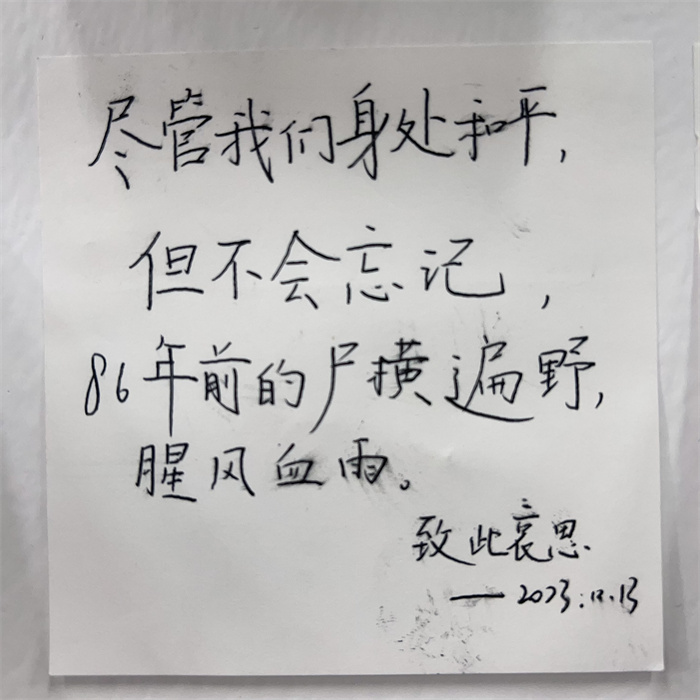 尽管我们身处和平,
但不会忘记,
86年前的尸横遍野,
腥风血雨。
致此哀思.
——2023.12.13